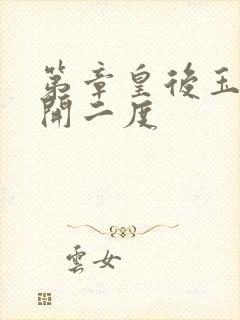 第章皇後玉
開二度
雲女